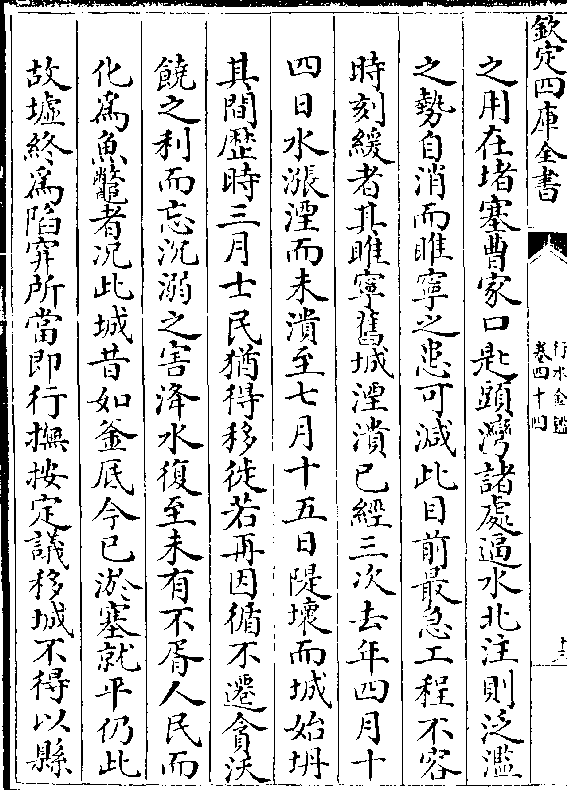 欽定四庫全書
行水金鑑
卷四十四
之用在堵塞曹家口匙頭灣諸處逼水北注則泛濫
之勢自消而睢寧之患可減此目前最急工程不容
時刻緩者其睢寧舊城湮潰已經三次去年四月十
四日水漲湮而未潰至七月十五日隄壞而城始坍
其間歷時三月士民猶得移徙若再因循不遷貪沃
饒之利而忘沉溺之害洚水復至未有不胥人民而
化為魚鼈者况此城昔如釜底今已淤塞就平仍此
故墟終為陷穽所當即行撫按定議移城不得以縣